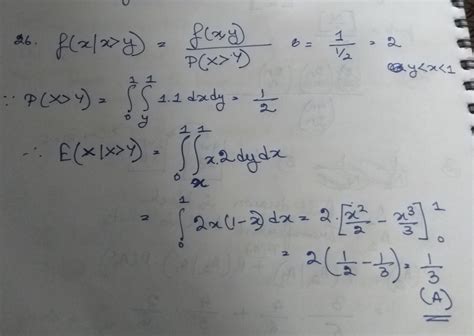 26. f(x|x>y) = f(xy) / P(X>Y) = 1 / 1/2 = 2
0<y<x<1
∵ P(X>Y) = ∫₀¹ ∫ᵧ¹ 1.1 dxdy = 1/2
∴ E(X|X>Y) = ∫₀¹ ∫ₓ¹ x.2 dydx
= ∫₀¹ 2x(1-x) dx = 2.[x²/2 - x³/3]₀¹
= 2(1/2 - 1/3) = 1/3
(A)